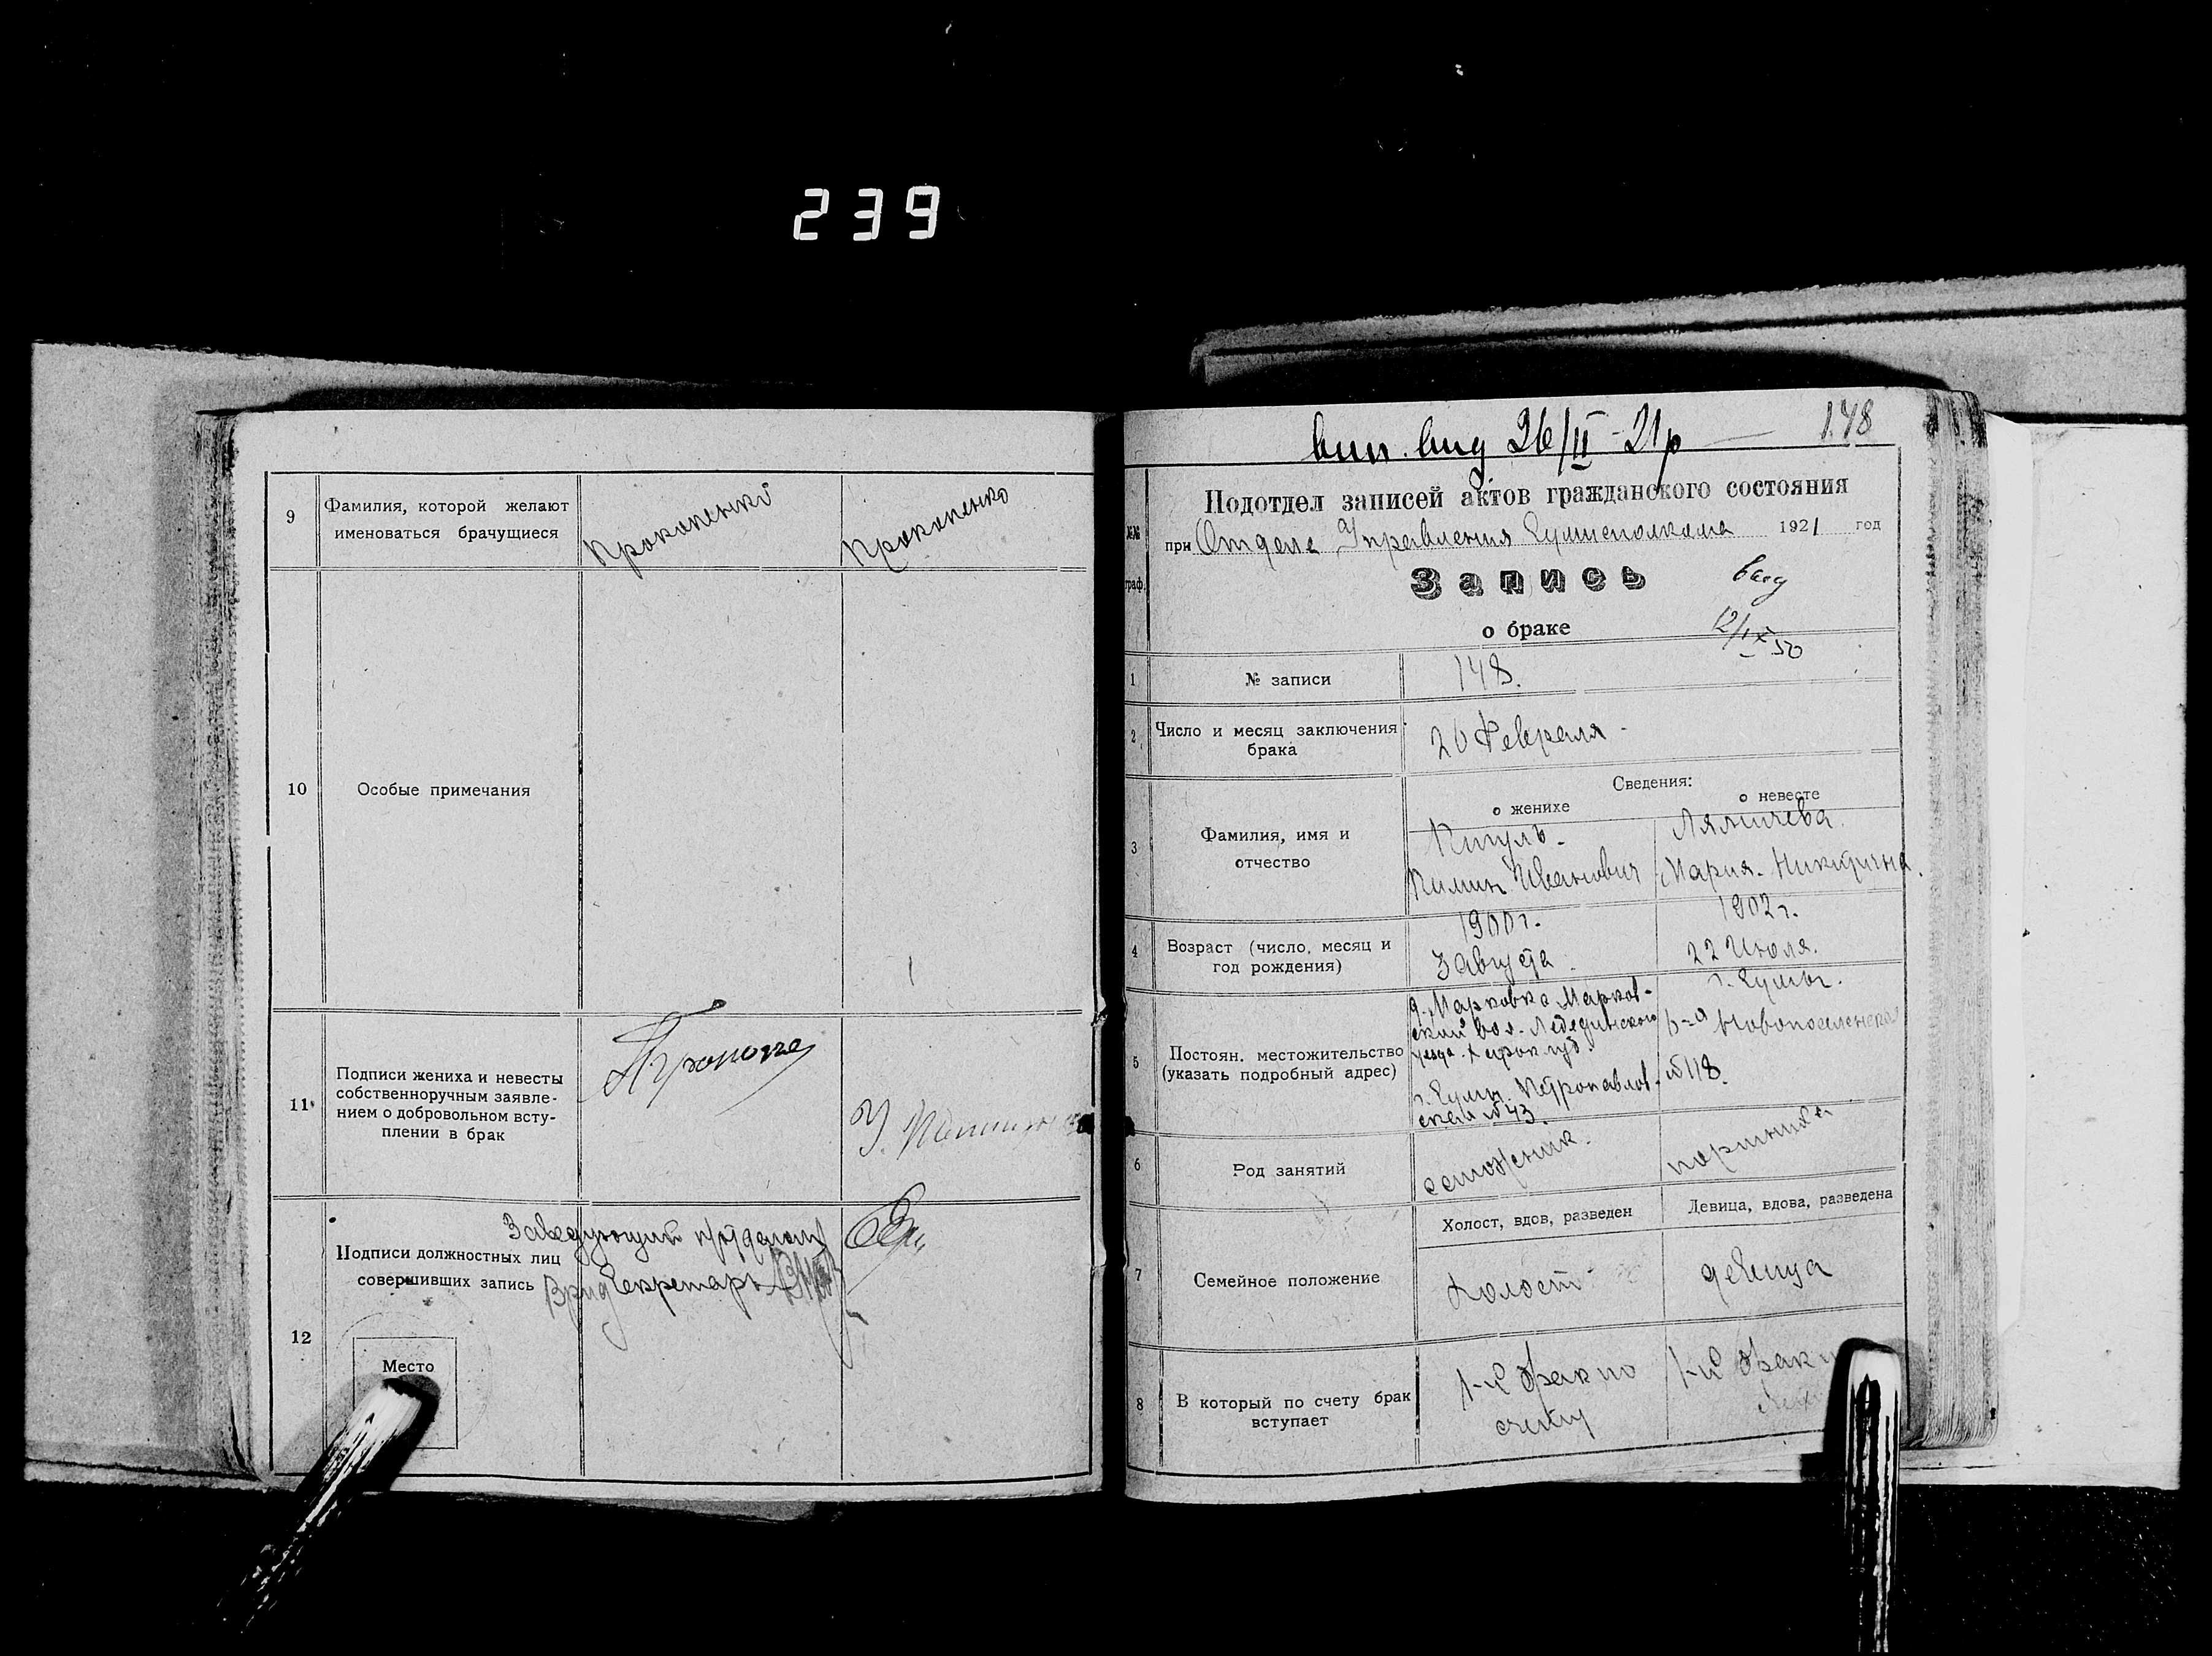 239
9
Фамилия, которой желают
именоваться брачущиеся
Прокопенко
Прокопенко
10
Особые примечания
11
Подписи жениха и невесты
собственноручным заявле-
нием о добровольном всту-
плении в брак
12
Подписи должностных лиц
совершивших запись
Заведующий п/отделом
Врид Секретарь
Место
148
вип. вид 26/II-21р
Подотдел записей актов гражданского состояния
№№
граф.
при Отделе Управления Сумисполкома 1921 год
Запись
о браке
вид
12/IX 50
1
№ записи
148.
2
Число и месяц заключения
брака
26 Февраля
Сведения:
о женихе
о невесте
3
Фамилия, имя и
отчество
Иванович
Мария Никитична
4
Возраст (число, месяц и
год рождения)
1900 г.
3 августа
1902 г.
22 Июля.
5
Постоян. местожительство
(указать подробный адрес)
д. Марковка Марков-
ской вол. Лебединского
уезда Харьк губ.
г. Сумы. Петропавлов-
ская №43.
г. Сумы.
№118.
6
Род занятий
сапожник.
портниха
7
Семейное положение
Холост, вдов, разведен
Девица, вдова, разведена
холост
девица
8
В который по счету брак
вступает
1-й брак по
счету
1-й брак